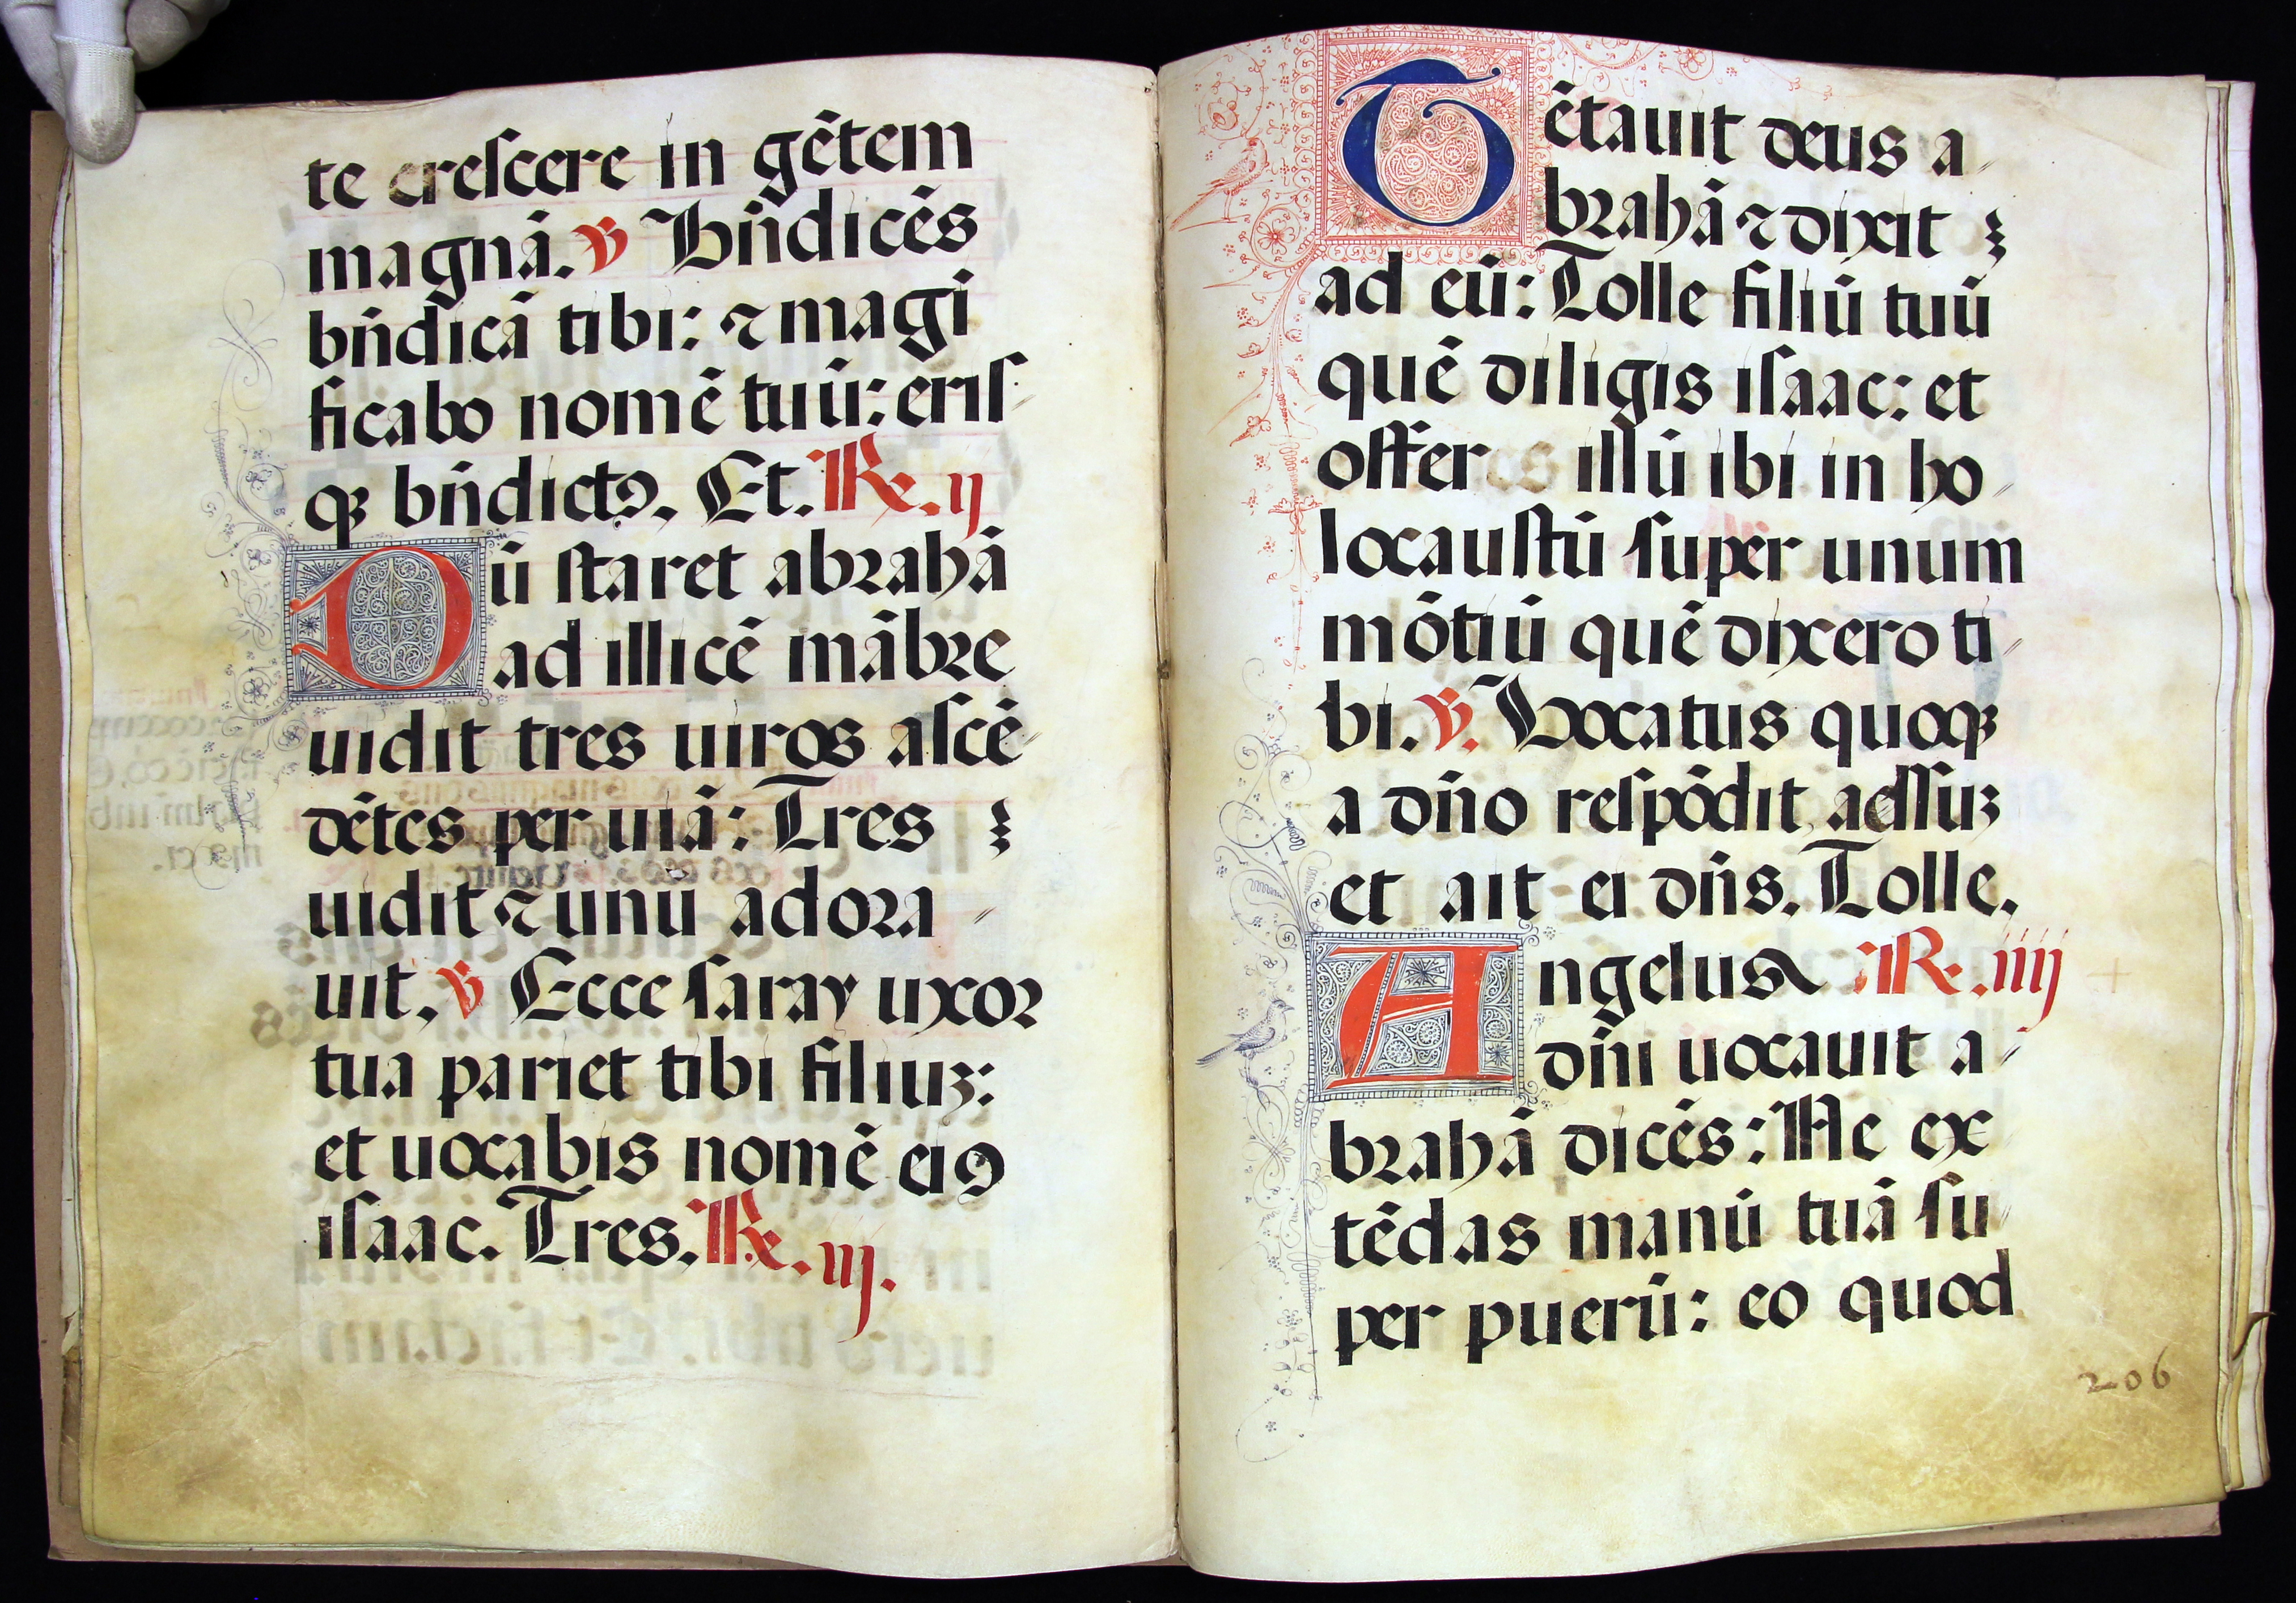 te creſcere in gẽtem
magnã. ℣ Bñdicẽs
bñdicã tibi: ⁊ magi
ficabo nomẽ tuũ: eriſ
qꝫ bñdictꝯ. Et. Re. ij
Dũ ſtaret abrahã
ad illicẽ mãbre
uidit tres uiros aſcẽ
dẽtes per uiã: Tres
uidit ⁊ unũ adora
uit. ℣ Ecce ſaray uxor
tua pariet tibi filiuꝫ:
et uocabis nomẽ eiꝯ
iſaac. Tres. Re. iij.
Tẽtauit deus a
brahã ⁊ dixit
ad eũ: Tolle filiũ tuũ
quẽ diligis iſaac: et
offeres illũ ibi in ho
locauſtũ ſuper unum
mõtiũ quẽ dixero ti
bi. ℣. Vocatus quoqꝫ
a dño reſpõdit adſuꝫ
et ait ei dñs. Tolle.
Angelus Re. iiij
dñi uocauit a
brahã dicẽs: Ne ex
tẽdas manũ tuã ſu
per puerũ: eo quod
206